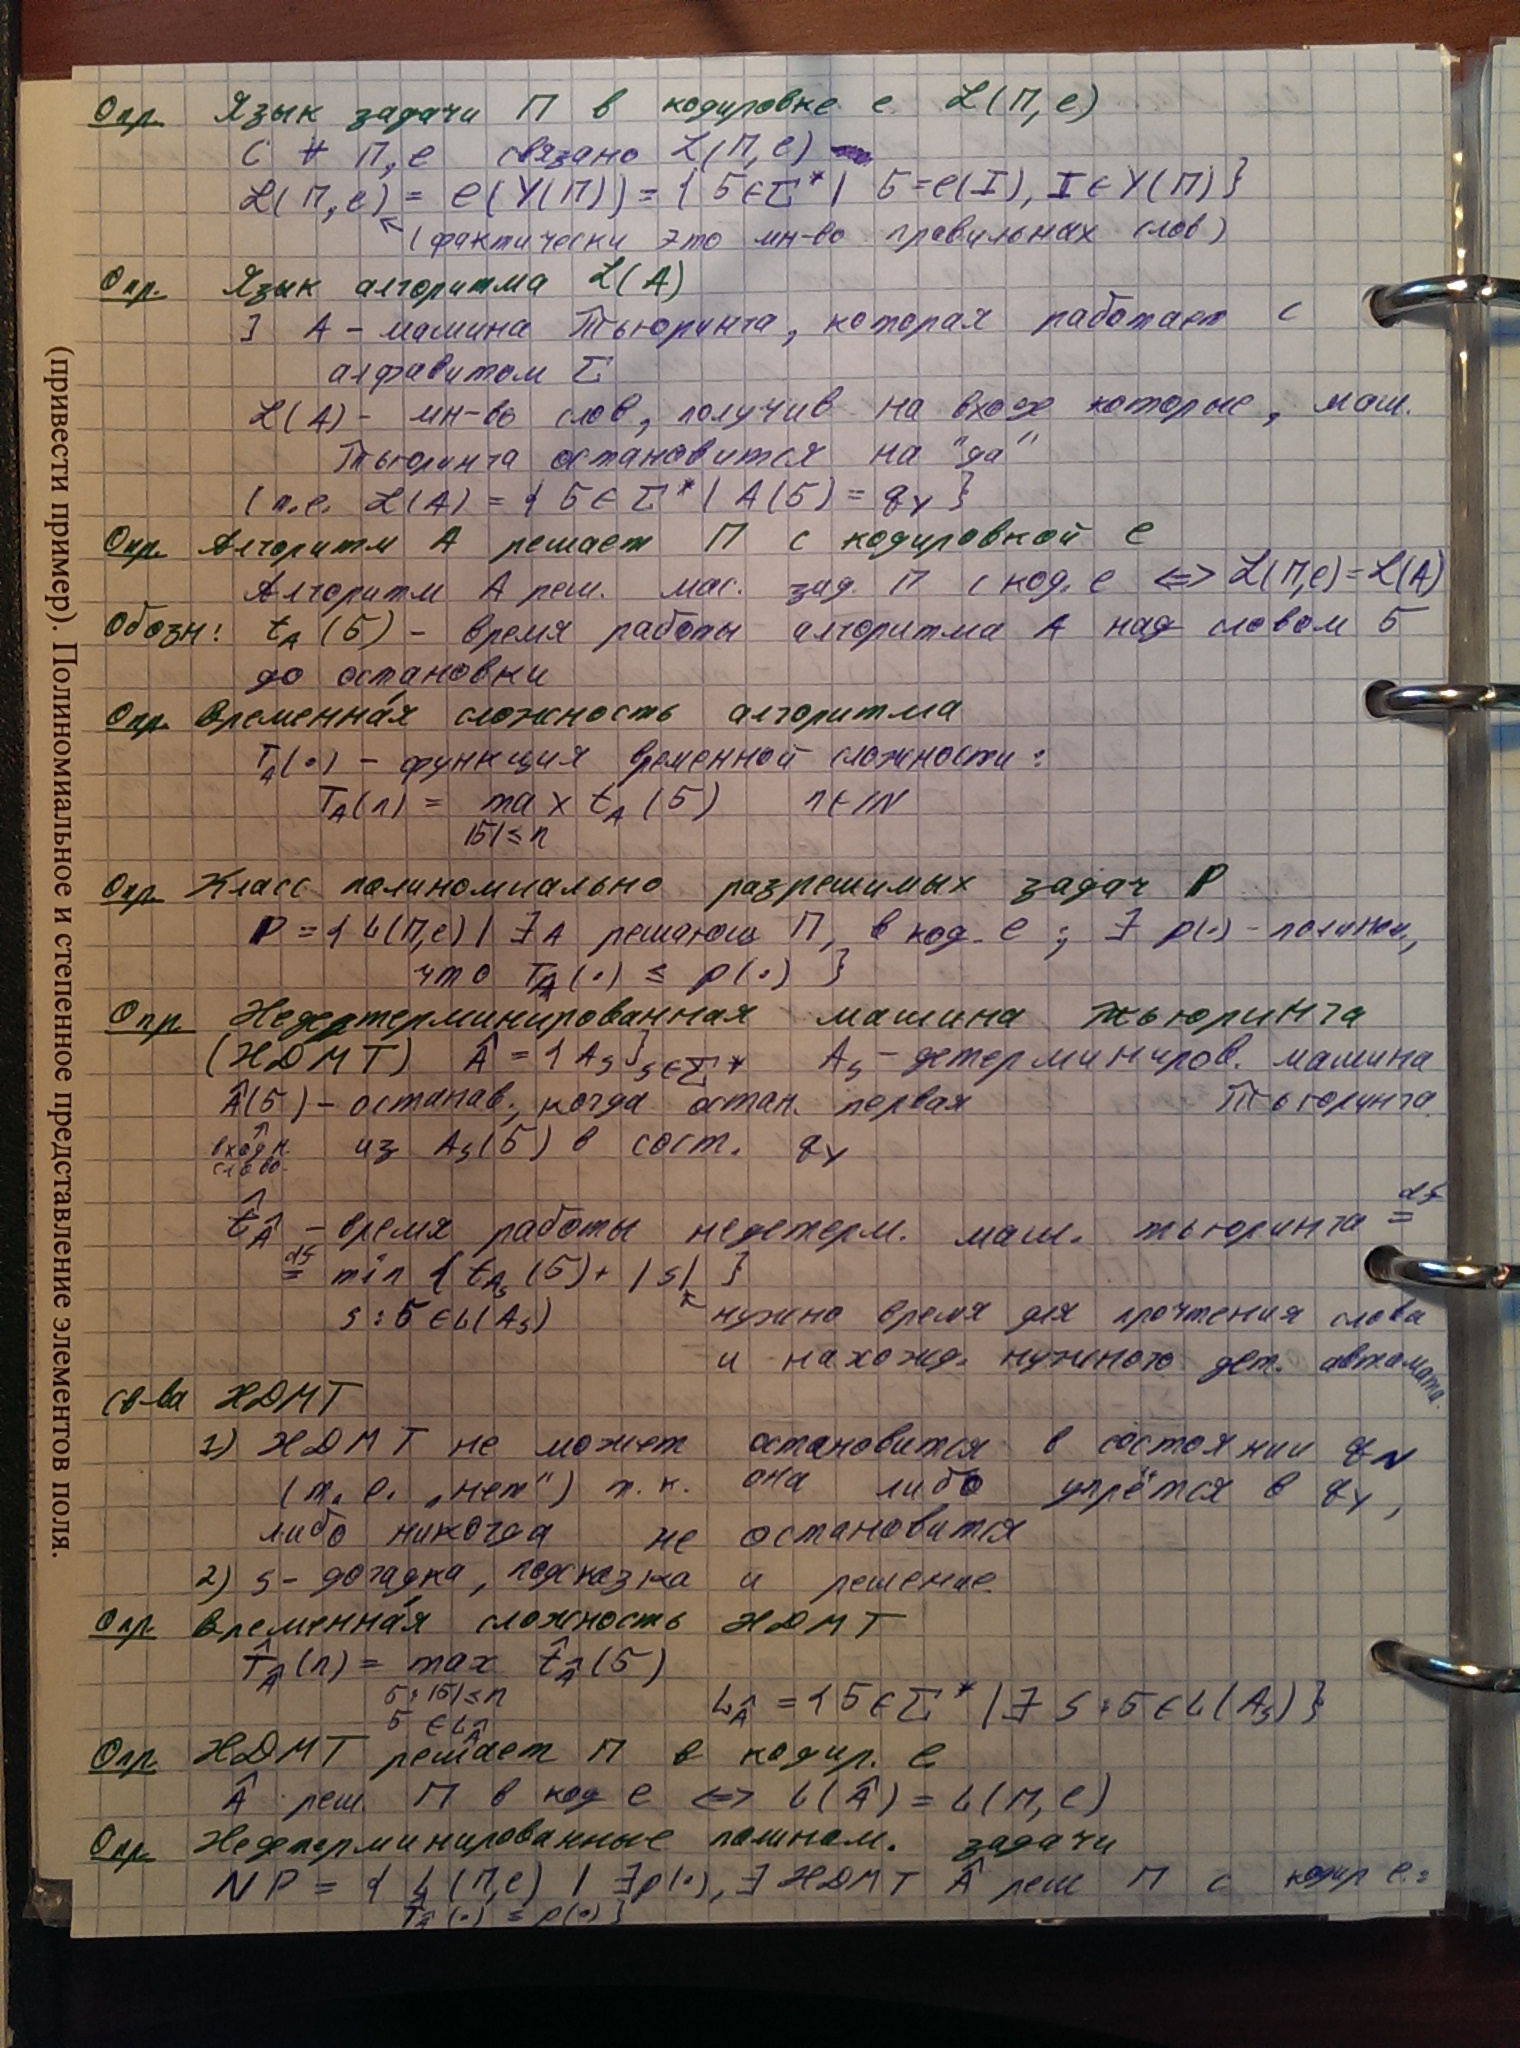 Опр. Язык задачи П в кодировке e L(П,e)
С ∀ П,e связано L(П,e)
L(П,e) = e(Y(П)) = { σ∈Σ* | σ=e(I), I∈Y(П) }
(фактически это мн-во правильных слов)
Опр. Язык алгоритма L(A)
] A – машина Тьюринга, которая работает с
алфавитом Σ
L(A) – мн-во слов, получив на входе которые, маш.
Тьюринга остановится на "да"
(т.е. L(A) = { σ∈Σ* | A(σ) = q_Y }
Опр. Алгоритм A решает П с кодировкой e
Алгоритм A реш. мас. зад. П с код. e <=> L(П,e)=L(A)
Обозн: t_A(σ) – время работы алгоритма A над словом σ
до остановки
Опр. Временна́я сложность алгоритма
T_A(•) – функция временной сложности:
T_A(n) = max t_A(σ) n∈ℕ
|σ|≤n
Опр. Класс полиномиально разрешимых задач P
P = { L(П,e) | ∃ A решающ П, в код. e ; ∃ p(•) – полином,
что T_A(•) ≤ p(•) }
Опр Недетерминированная машина тьюринга
(НДМТ) Â = {A_s}_{s∈Σ*} A_s – детерминиров. машина
Тьюринга.
Â(σ) – останав., когда остан. первая
входн. слово.
из A_s(σ) в сост. q_Y
t̂_Â – время работы недетерм. маш. тьюринга df=
df= min { t_{A_s}(σ) + |s| }
s : σ ∈ L(A_s)
нужно время для прочтения слова
и нахожд. нужного дет. автомата.
св-ва НДМТ
1) НДМТ не может остановится в состоянии q_N
(т. е. „нет“) т. к. она либо упрётся в q_Y,
либо никогда не остановится
2) s – догадка, подсказка и решение.
Опр. Временна́я сложность НДМТ
T̂_Â(n) = max t̂_Â(σ)
σ: |σ|≤n
σ ∈ L_Â
L_Â = { σ∈Σ* | ∃ s : σ∈L(A_s) }
Опр. НДМТ решает П в кодир. e
Â реш. П в код e <=> L(Â) = L(П,e)
Опр. Недетерминированные полином. задачи
NP = { L(П,e) | ∃p(•), ∃ НДМТ Â реш П с кодир e:
T̂_Â(•) ≤ p(•) }
(привести пример). Полиномиальное и степенное представление элементов поля.